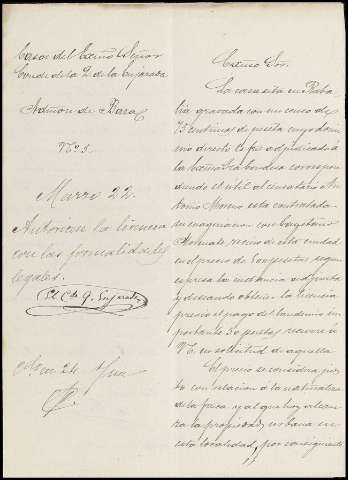 Casa del Exmo Señor
Conde de la Q. de la Enjarada
Admon de Baza
Nº 5.
Marzo 22.
Autorizar la licencia
con las formalidades
legales.
El Cde Q. Enjarada
en 24.
Exmo Sor.
La casa sita en Raba-
gravada con un censo de
75 centimos de peseta cuyo dom
inio directo le fue adjudicado á
la Exma Sra Condesa correspon
diendo el util al censatario An
tonio Moreno esta contratada
su enagenacion con Cayetano
vecino de esta ciudad
en precio de 500 pesetas segun
espresa la instancia adjunta
y deseando obtener la licencia
previo el pago del laudemio im
portante 30 pesetas recurre á
VE en solicitud de aquella
El precio se considera jus
to con relacion á la naturaleza
de la finca y al que hoy alcan
za la propiedad urbana en
esta localidad, por consiguiente